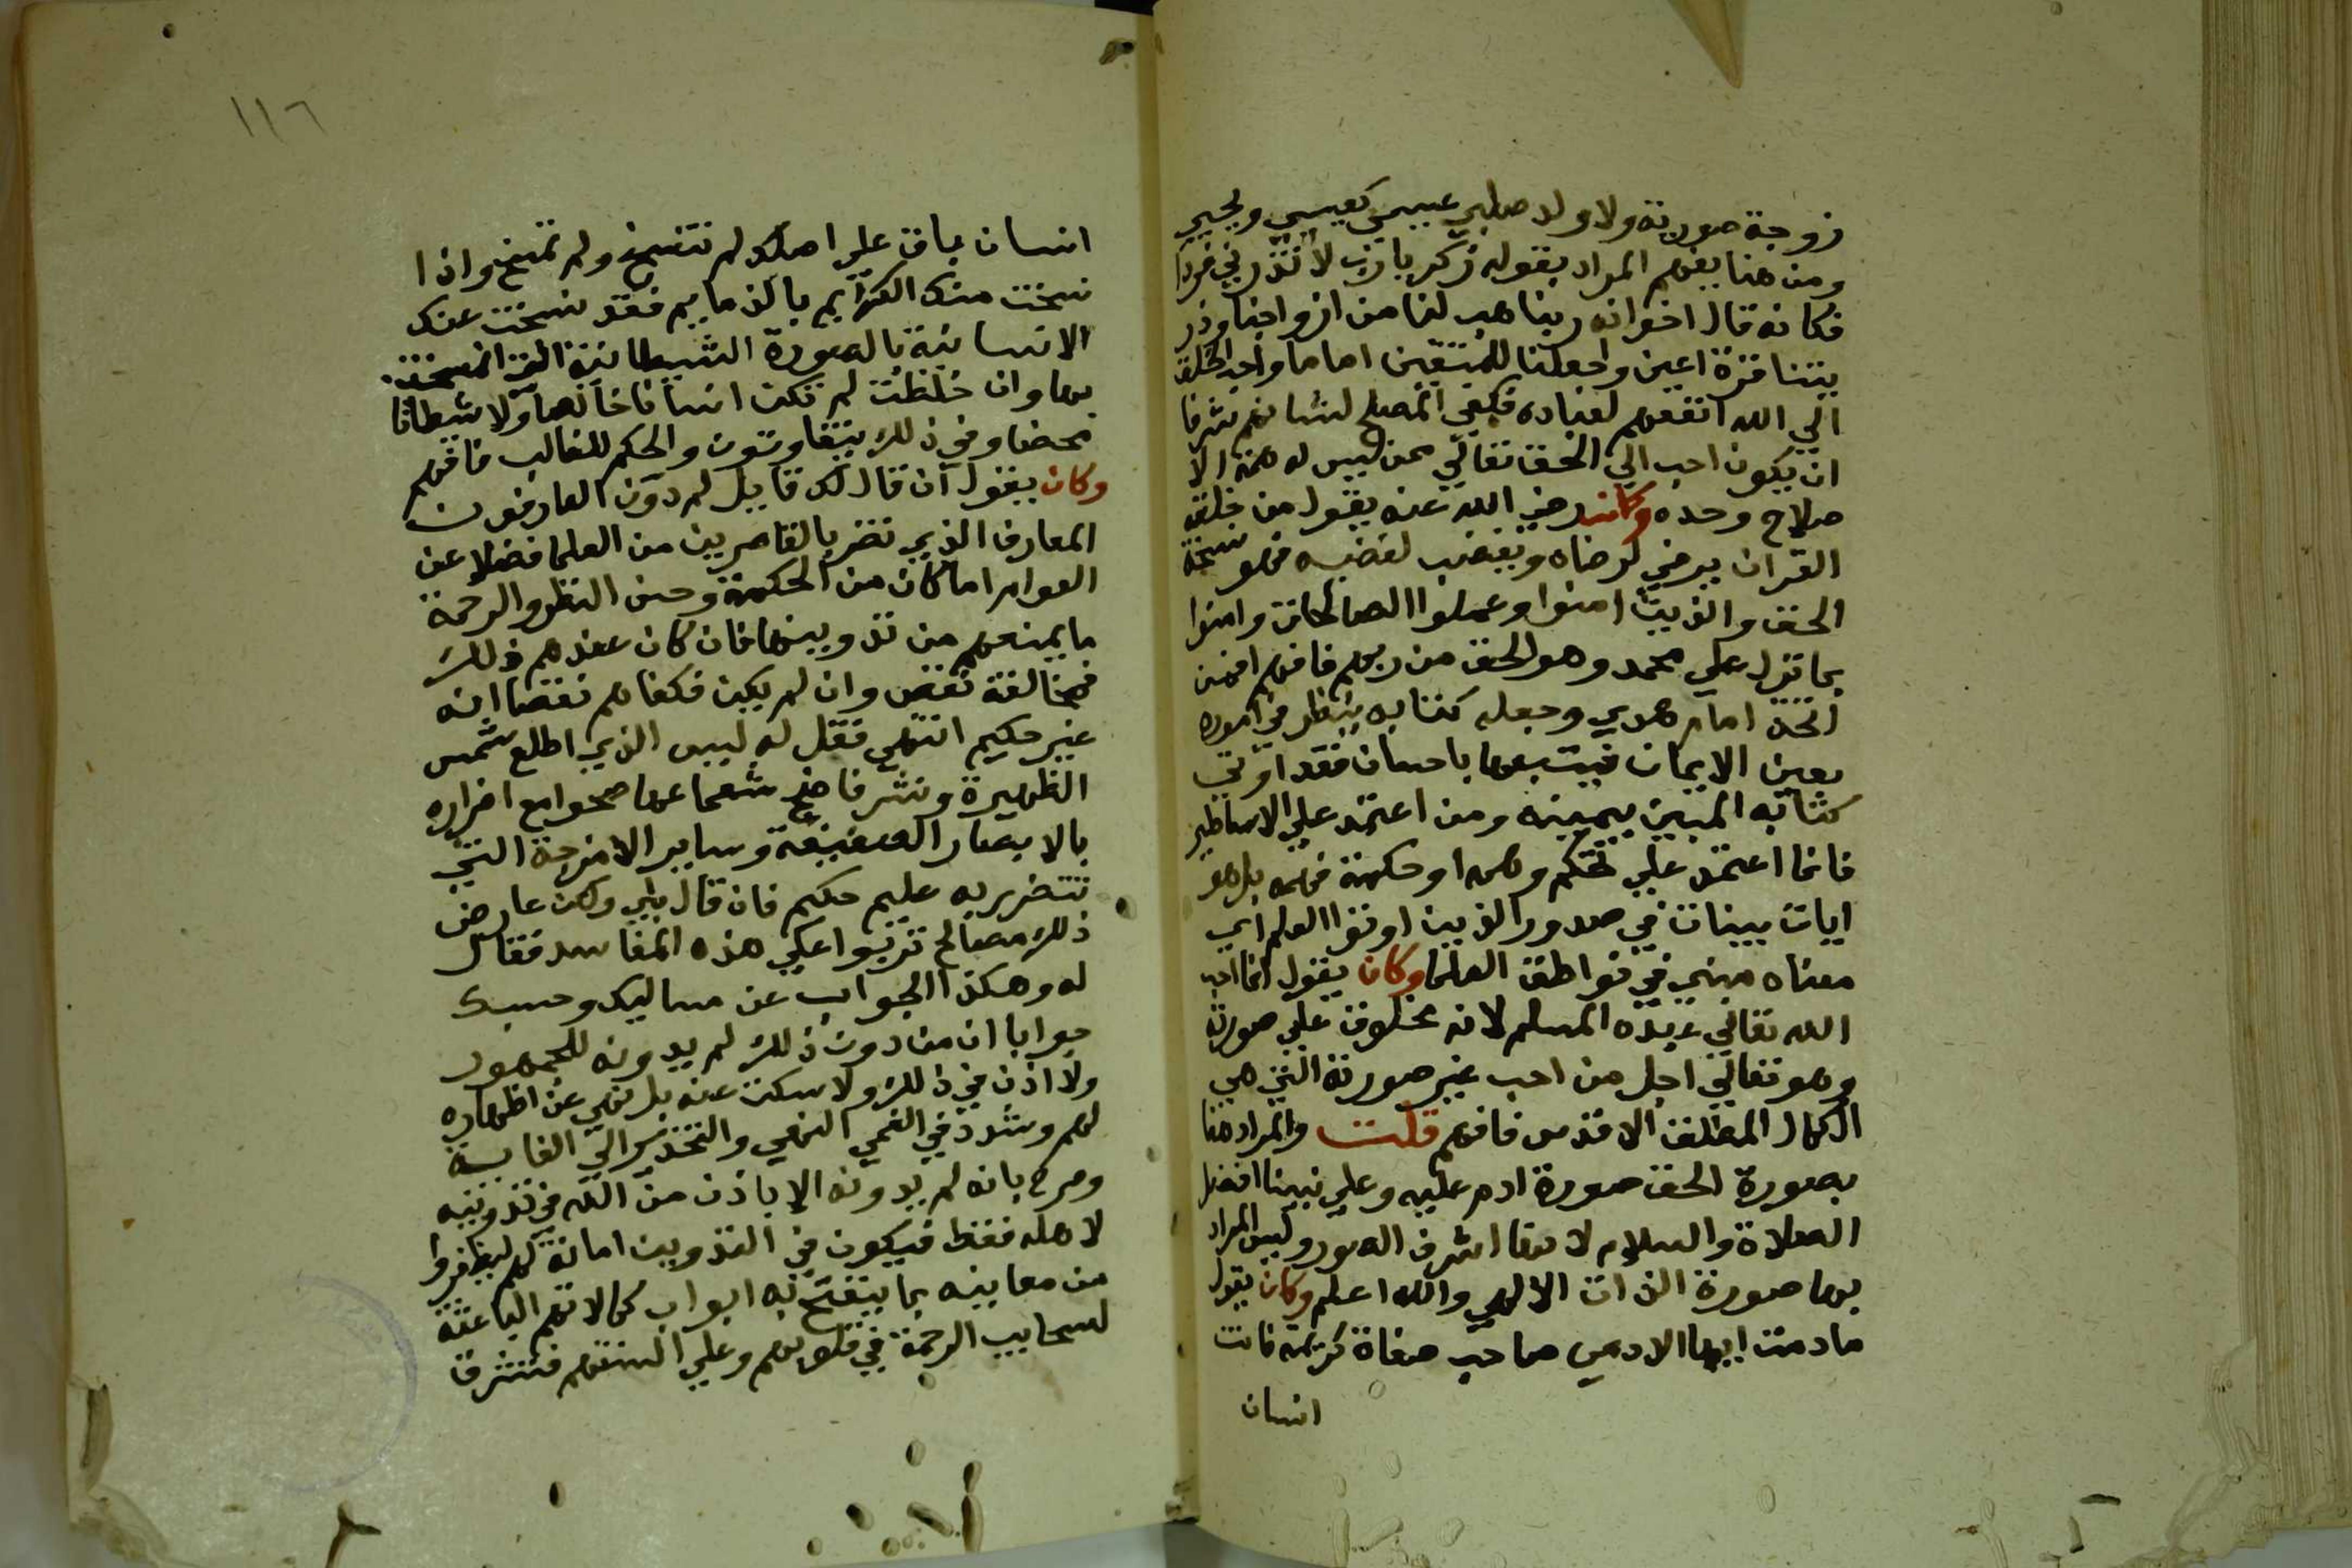 زوجة صورية ولا ولد صلبي عيسى كعيسي ويحيي
ومن هنا يفهم المراد بقوله زكريا رب لا تذرني فردا
فكانه قال اخوانه ربنا هب لنا من ازواجنا وذر
يتنا قرة اعين واجعلنا للمتقين اماما واحب الخلق
الي الله انفعهم لعباده فكفي المصلح لشانهم شرفا
ان يكون احب الي الحق تعالي ممن ليس له همة الا
صلاح وحده وكان رضي الله عنه يقول من خلقه
القران يرضي لرضاه ويغضب لغضبه فهو نسخة
الحق والذين امنوا وعملوا الصالحات وامنوا
بما نزل علي محمد وهو الحق من ربهم فافهم فمن
اتخذ امام هدي وجعله كتابه ينظر في اموره
بعين الايمان فيتبعها باحسان فقد اوتي
كتابه المبين بيمينه ومن اعتمد علي الاساطير
فانما اعتمد علي تحكم وهم او حكمة فهم بل هو
ايات بينات في صدور الذين اوتوا العلم اي
معناه مبني في نواطق العلما وكان يقول انما احب
الله تعالي عبده المسلم لانه مخلوق علي صورته
وهو تعالي اجل من احب غير صورته التي هي
الكمال المطلق الاقدس فافهم قلت والمراد هنا
بصورة الحق صورة ادم عليه وعلي نبينا افضل
الصلاة والسلام لانها اشرف الصور وليس المراد
بها صورة الذات الالهي والله اعلم وكان يقول
مادمت ايها الادمي صاحب صفاة كريمة فانت
انسان
١١٦
انسان باق علي اصلك لم تنفسخ ولم تمسخ واذا
نسخت منك الكرايم بالذمايم فقد نسخت عنك
الانسانية بالصورة الشيطانية التي انتسخت
بها وان خلطت لم تكن انسانا خالصا ولا شيطانا
محضا وفي ذلك يتفاوتون والحكم للغالب فافهم
وكان يقول ان قال لك قايل لم دون العارفون
المعارف الذي تضر بالقاصرين من العلما فضلا عن
العوام اما كان من الحكمة وحسن النظر والرحمة
ما يمنعهم من تدوينها فان كان عندهم ذلك
فمخالفته نقص وان لم يكن فكفاهم نقصا انه
غير حكيم انتهي فقل له ليس الذي اطلع شمس
الظهيرة ونشر ناصع شعاعها صحوا مع اضراره
بالابصار الضعيفة وساير الامزجة التي
تتضرر به عليم حكيم فان قال بلي ولكن عارض
ذلك مصالح تربوا علي هذه المفاسد فقال
له وهكذا الجواب عن مسالتك وحسبك
جوابا ان من دون ذلك لم يدونه للجمهور
ولا اذن في ذلك ولا سكت عنه بل نهي عن اظهاره
لهم وشدد في النهي والتحذير الي الغاية
وصرح بانه لم يدونه الا باذن من الله في تدوينه
لاهله فقط فيكون في التدوين امانة لهم ليظفروا
من معاينه بما ينفتح به ابواب كمالاتهم الباعثة
لسحايب الرحمة في قلوبهم وعلي السنتهم فتشرق